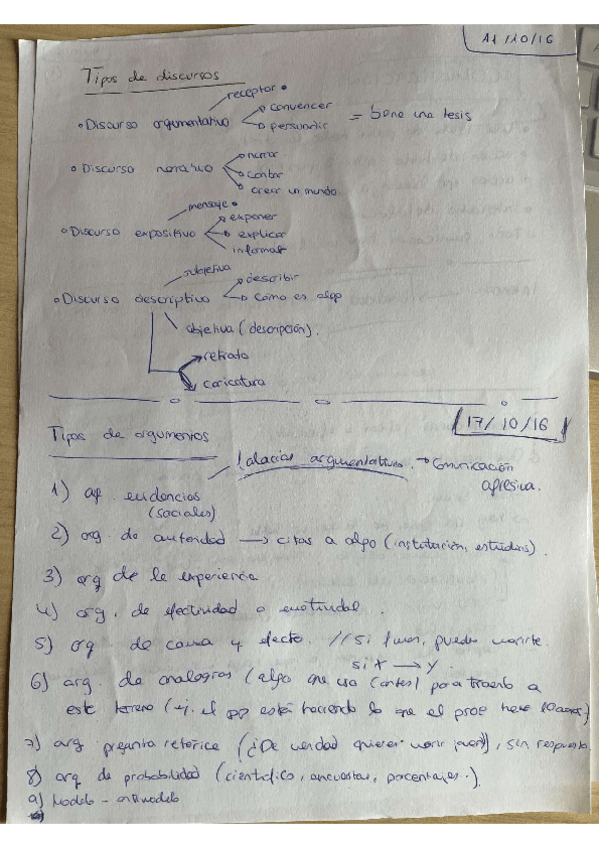 11/10/16
Tipos de discursos
receptor
• Discurso argumentativo
convencer
persuadir
= tiene una tesis
• Discurso narrativo
narrar
contar
crear un mundo
mensaje
• Discurso expositivo
exponer
explicar
informar
subjetiva
• Discurso descriptivo
describir
cómo es algo
objetiva (descripción).
retrato
caricatura
17/10/16
Tipos de argumentos
falacias argumentativas. → Comunicación
agresiva.
1) evidencias
(sociales)
2) arg. de autoridad → citas a algo (institución, estudios).
3) arg de la experiencia
4) arg. de efectividad o emotividad.
5) arg de causa y efecto. // si fumas, puedes morirte.
si X → Y.
6) arg. de analogías (algo que usa (antes) para traerlo a
este terreno (ej. el PP está haciendo lo que el PSOE hace 10 años)
7) arg pregunta retórica (¿De verdad quieres morir joven?), sin respuesta.
8) arg de probabilidad (científico, encuestas, porcentajes.).
9) Modelo - antimodelo